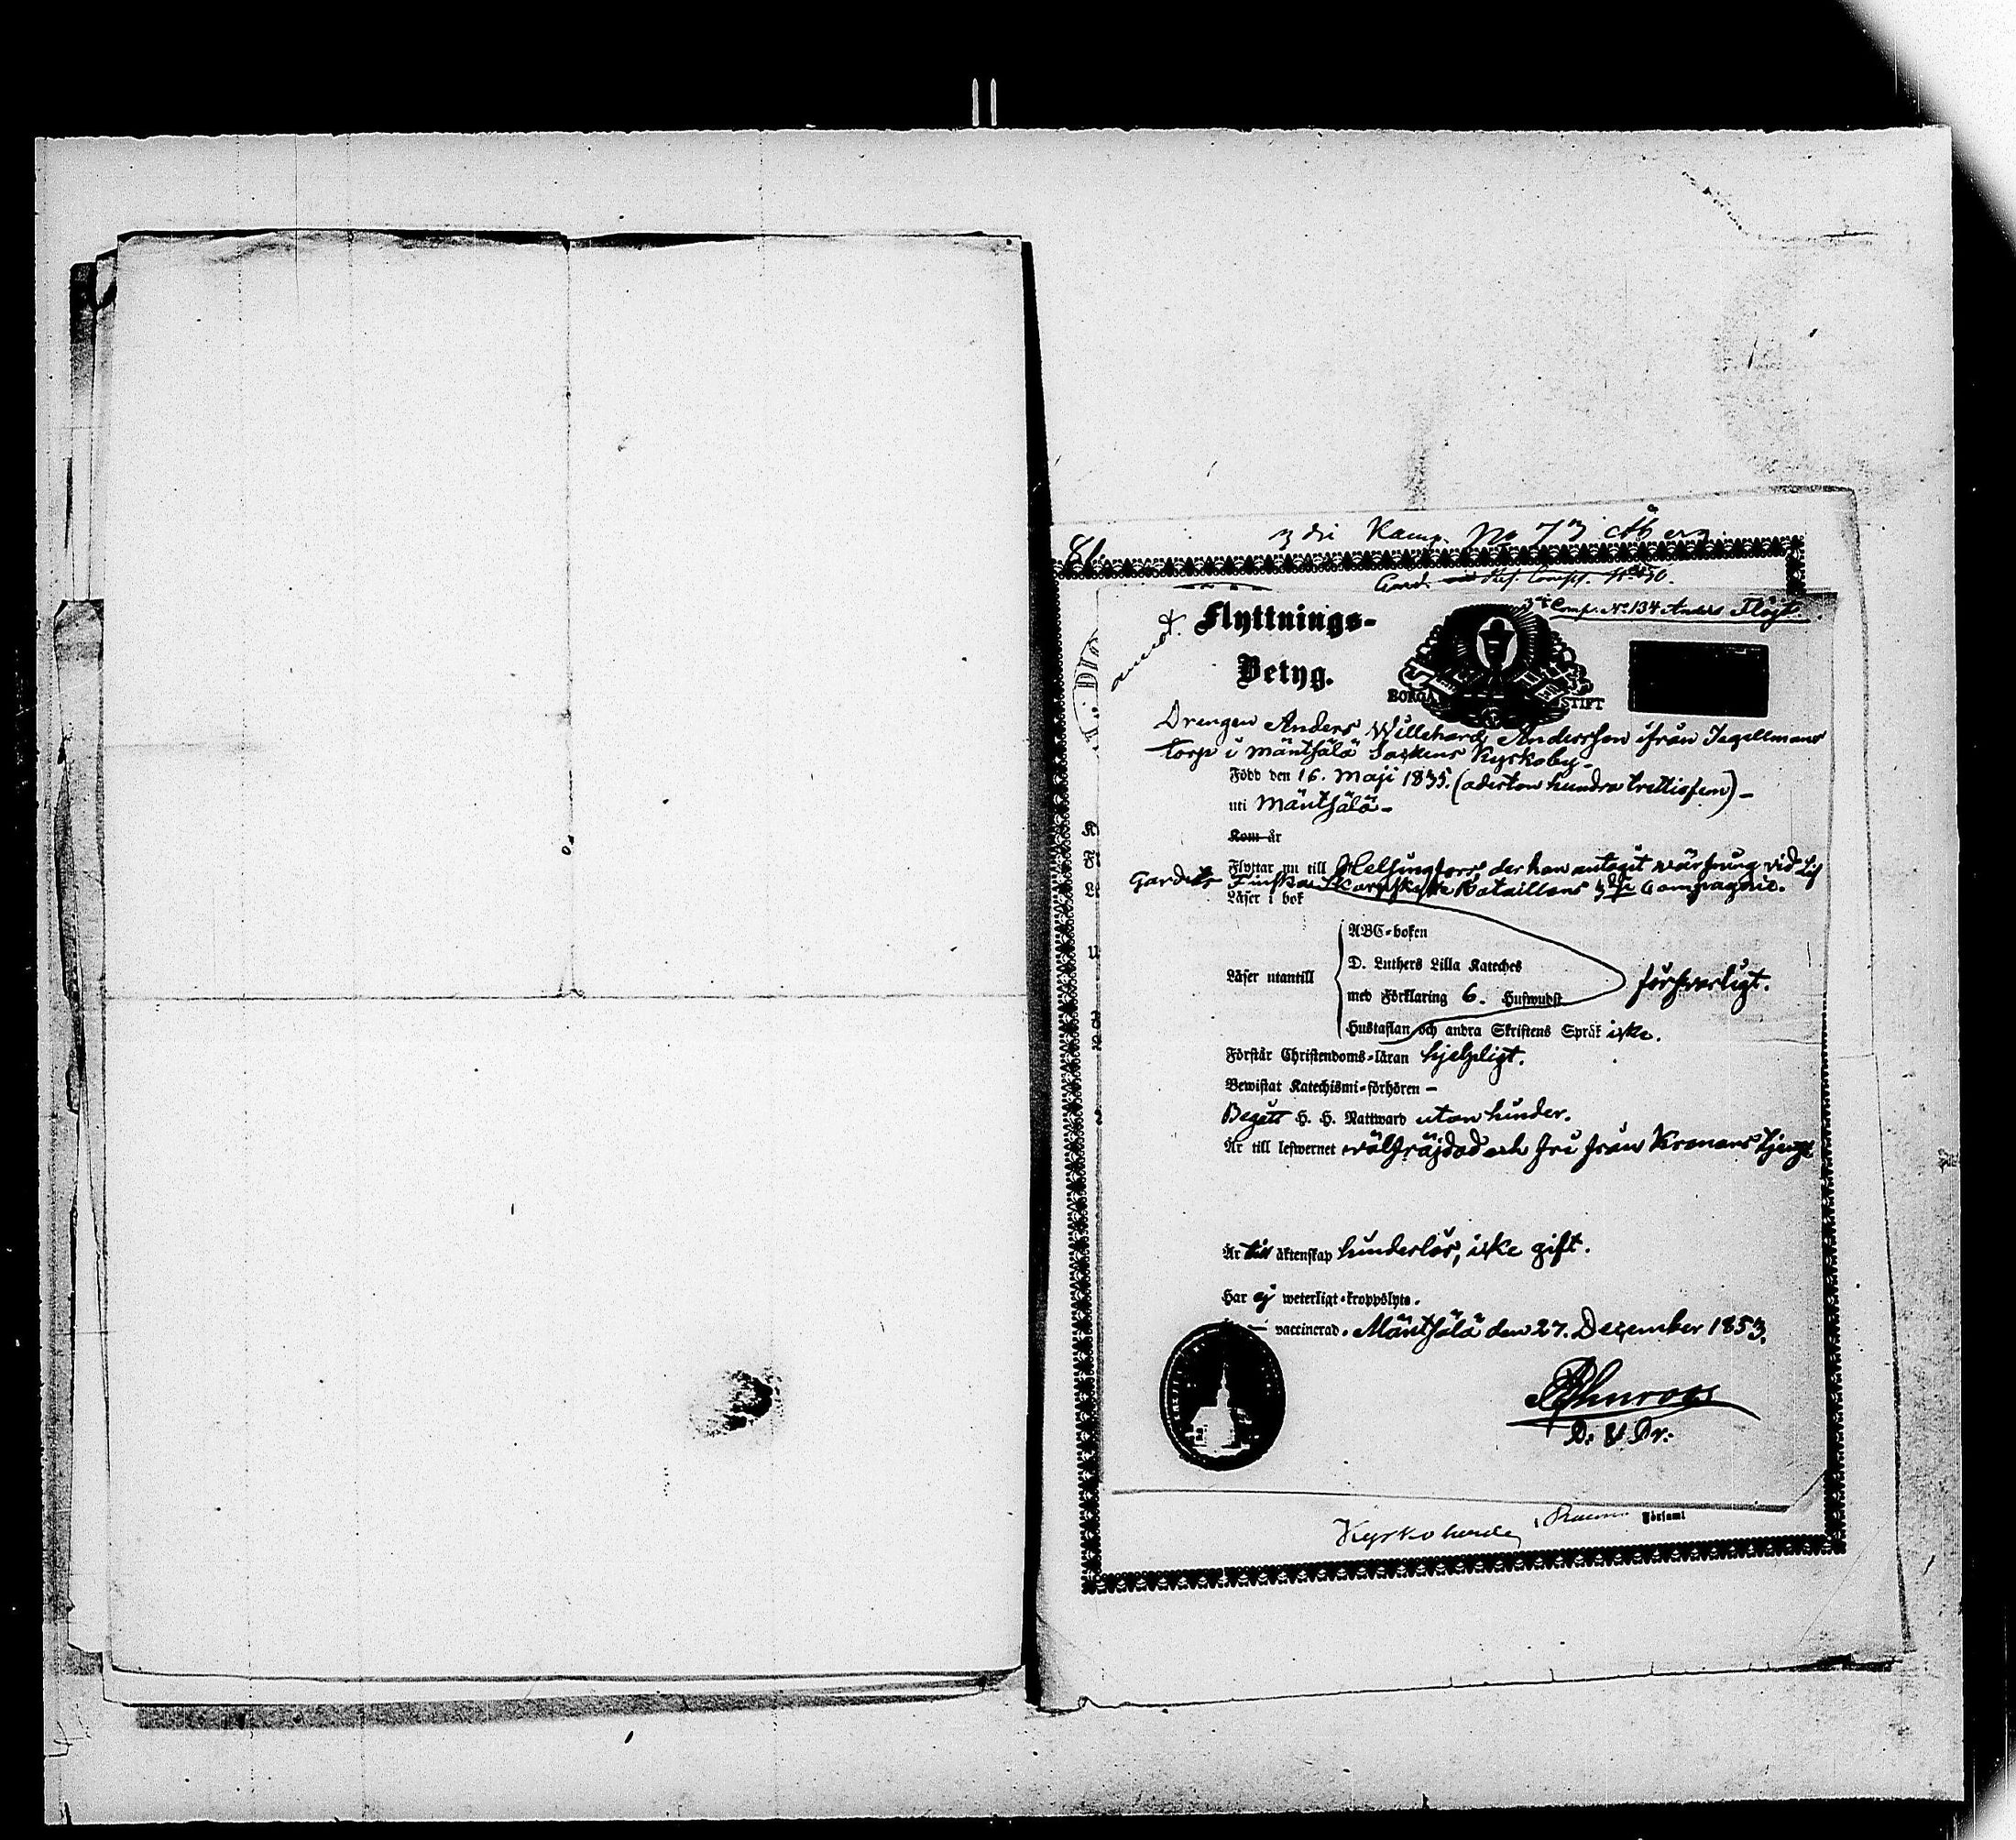 3 die Kamp. No 73 Åberg
81.
Gard. Res. Comp. No 50.
3de Comp. No 134 Anders Flögt
Flyttnings-
Betyg.
BORGÅ STIFT
Drengen Anders Willehard Andersson ifrån Tegellmans
torp i Mäntsälä Sockens Kyrkoby.
Född den 16. Maji 1835. (aderton hundra trettifem) –
uti Mäntsälä –
Kom år
Flyttar nu till Helsingfors, der han antagit wärfning vid Lif
Gardets Finska Skarpskytte Bataillons 3die Compagnie.
Läser i bok
ABC-boken
D. Luthers Lilla Kateches
Läser utantill
med Förklaring 6. Hufwudst.
försvarligt.
Hustaflan och andra Skriftens Språk icke.
Förstår Christendoms-läran hjelpligt.
Bewistat Katechismi-förhören –
Begått H. H. Nattward utan hinder.
Är till lefwernet välfräjdad och fri från Kronans tjenst
Är till äktenskap hinderlös, icke gift.
Har ej weterligt kroppslyte.
vaccinerad. Mäntsälä den 27. December 1853.
D. V. Dr.
Kyrkoherde i Församl